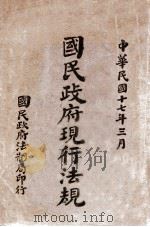 中華民國十七年三月
國民政府現行法規
國民政府法制局印行
www.mtoou.info